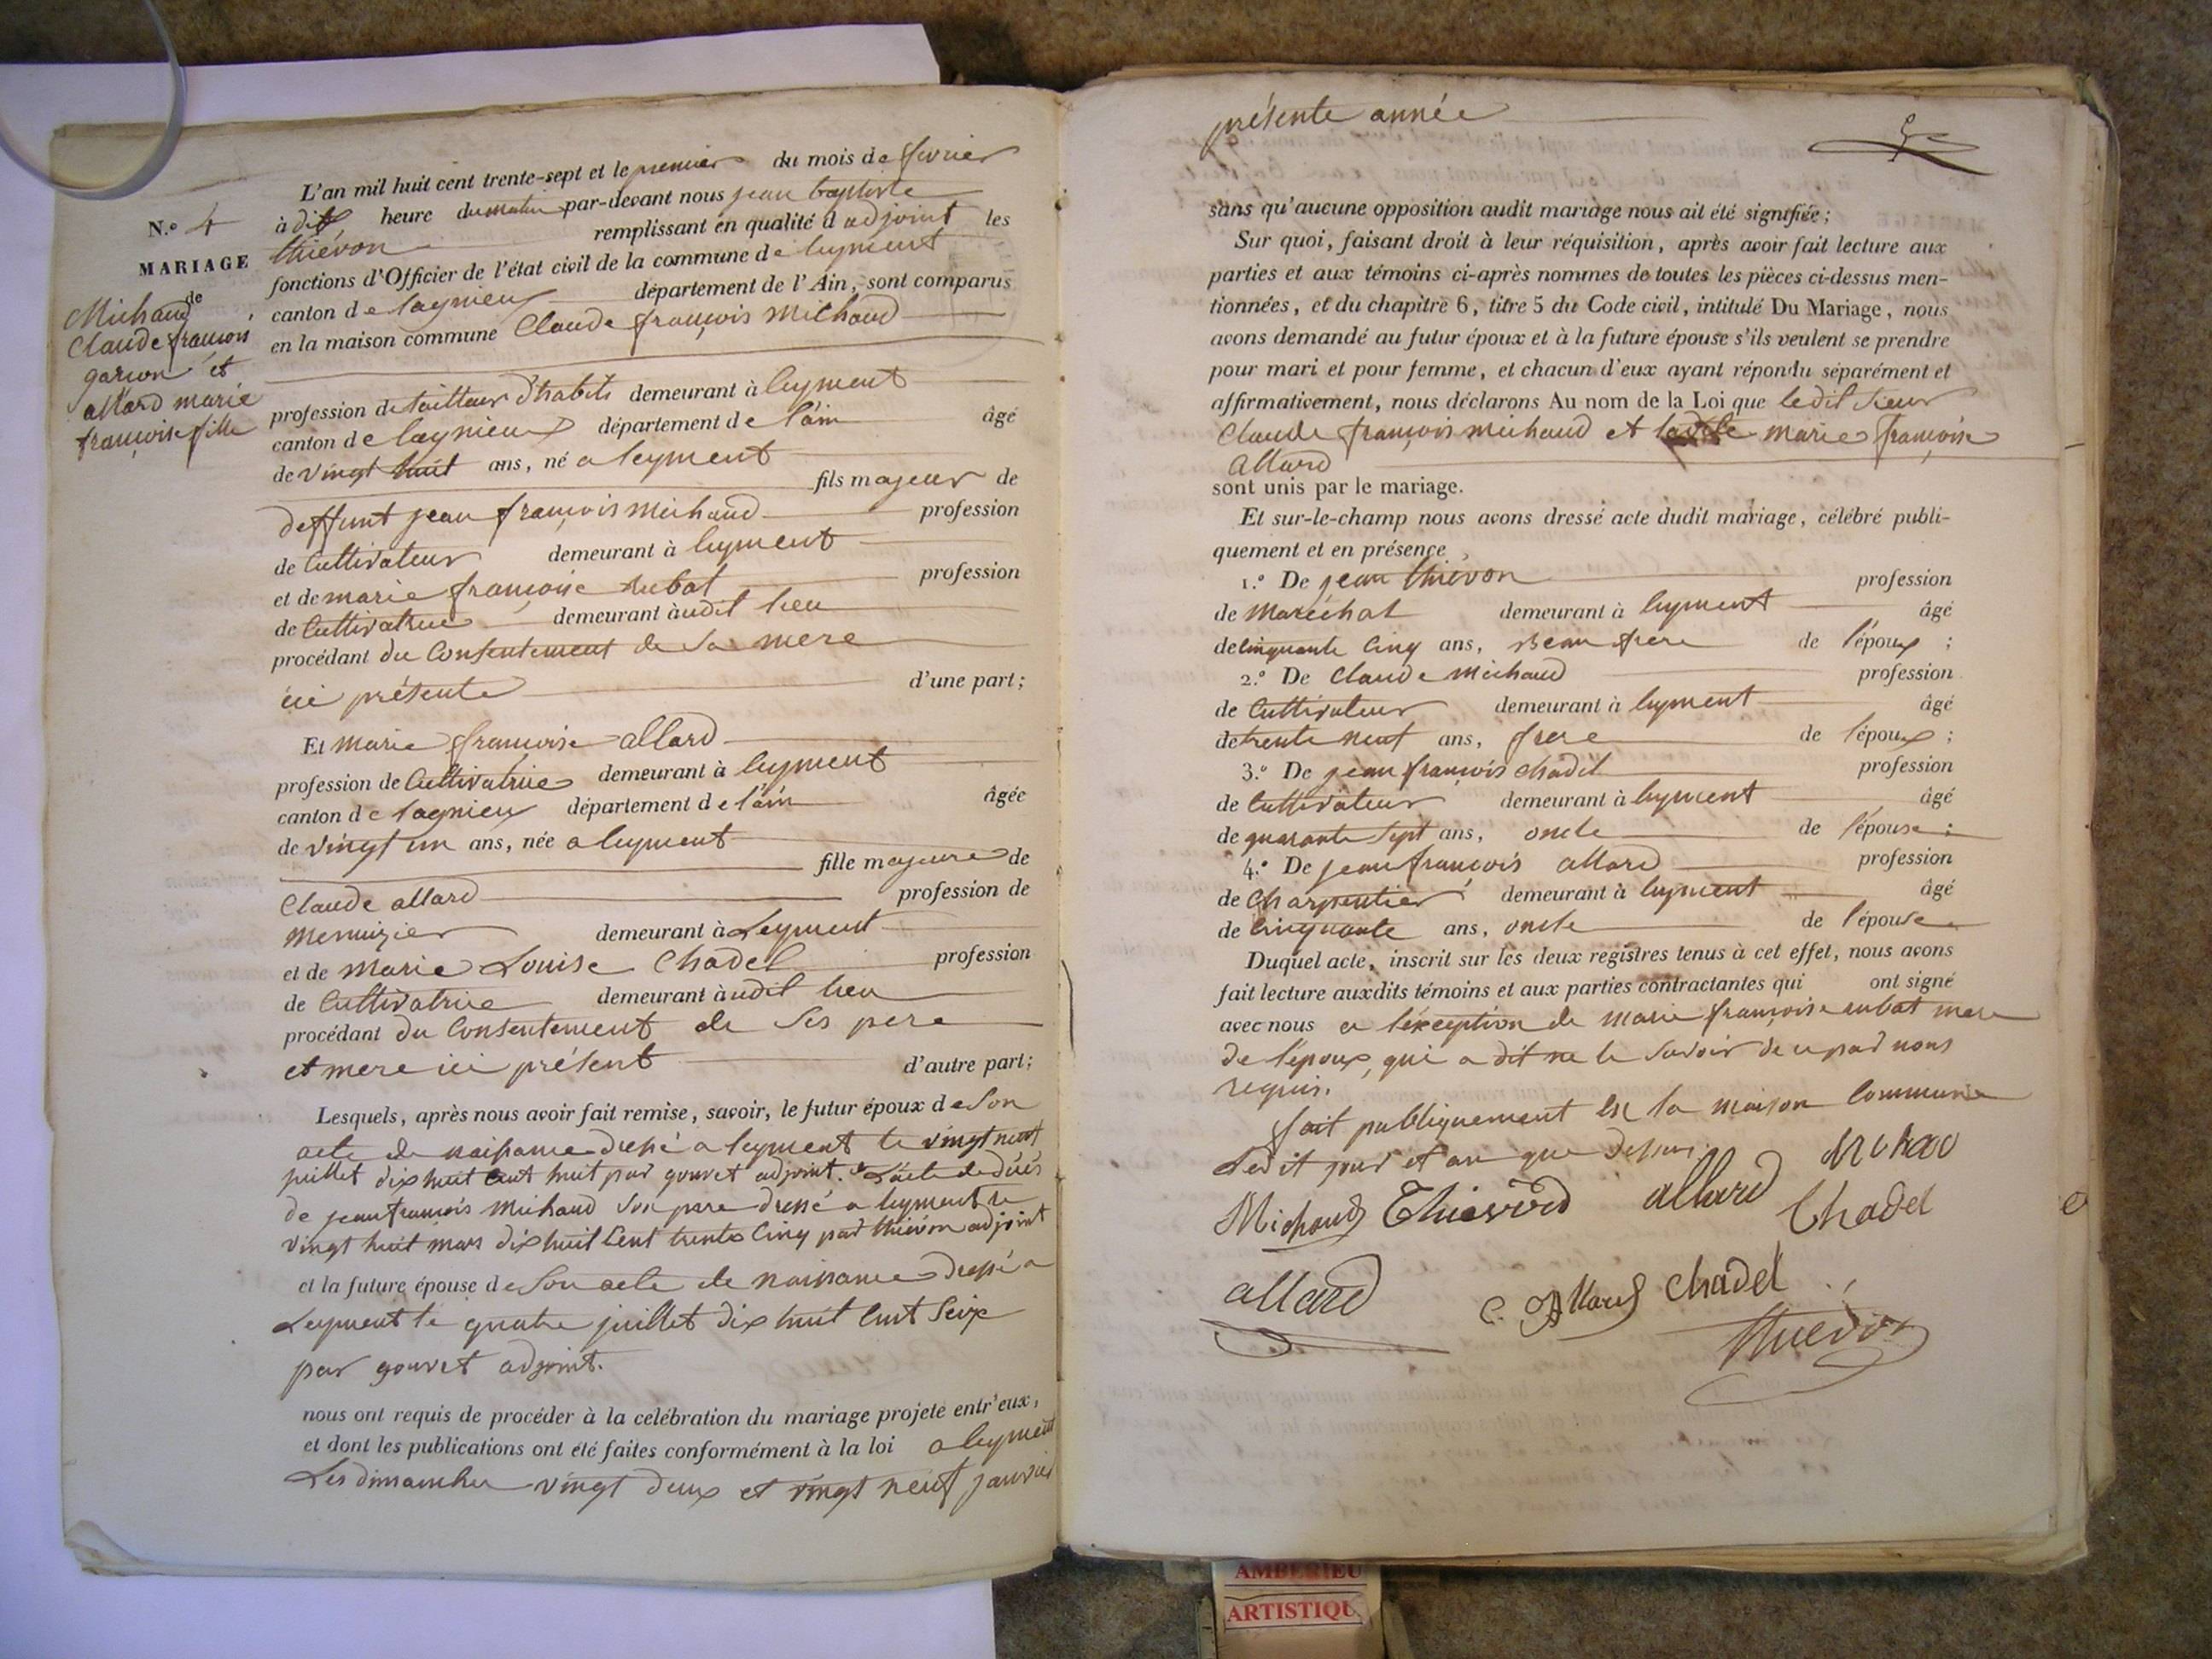 N.° 4
MARIAGE
de
Michaud
Claude françois
garson et
allard marie
françoise fille
L'an mil huit cent trente-sept et le premier du mois de fevrier
à dix heure du matin par-devant nous jean baptiste
thiévon remplissant en qualité d adjoint les
fonctions d'Officier de l'état civil de la commune de leyment
canton de lagnieux département de l'Ain, sont comparus
en la maison commune Claude françois Michaud
profession de tailleur d'habits demeurant à leyment
canton de lagnieux département de l'ain âgé
de vingt huit ans, né a leyment
fils majeur de
deffunt jean françois Michaud profession
de Cultivateur demeurant à leyment
et de marie françoise rubat profession
de Cultivatrice demeurant àudit lieu
procédant du Consentement de sa mere
ici présente d'une part;
Et marie françoise allard
profession de Cultivatrice demeurant à leyment
canton de lagnieux département de l'ain âgée
de vingt un ans, née a leyment
fille majeure de
Claude allard profession de
menuizier demeurant à Leyment
et de marie Louise Chadel profession
de Cultivatrice demeurant àudit lieu
procédant du Consentement de ses pere
et mere ici présent d'autre part;
Lesquels, après nous avoir fait remise, savoir, le futur époux de son
acte de naissance dressé a leyment le vingt neuf
juillet dix huit cent huit par gouvet adjoint. de L'acte de décès
de jean françois michaud son pere dressé a leyment le
vingt huit mars dix huit Cent trente Cinq par thiévon adjoint
et la future épouse de son acte de naissance dressé a
Leyment le quatre juillet dix huit Cent seize
par gouvet adjoint.
nous ont requis de procéder à la celébration du mariage projeté entr'eux,
et dont les publications ont été faites conformément à la loi a leyment
Les dimanches vingt deux et vingt neuf janvier
présente année
sans qu'aucune opposition audit mariage nous ait été signifiée;
Sur quoi, faisant droit à leur réquisition, après avoir fait lecture aux
parties et aux témoins ci-après nommes de toutes les pièces ci-dessus men-
tionnées, et du chapitre 6, titre 5 du Code civil, intitulé Du Mariage, nous
avons demandé au futur époux et à la future épouse s'ils veulent se prendre
pour mari et pour femme, et chacun d'eux ayant répondu séparément et
affirmativement, nous déclarons Au nom de la Loi que ledit Sieur
Claude françois michaud et marie françoise
allard
sont unis par le mariage.
Et sur-le-champ nous avons dressé acte dudit mariage, célébré publi-
quement et en présence
1.° De jean thiévon profession
de Maréchal demeurant à leyment âgé
de cinquante Cinq ans, Beau frere de l'époux ;
2.° De Claude Michaud profession
de Cultivateur demeurant à leyment âgé
de trente neuf ans, frere de l'époux ;
3.° De jean françois chadel profession
de Cultivateur demeurant à leyment âgé
de quarante sept ans, oncle de l'épouse ;
4.° De jean françois allard profession
de Charpentier demeurant à leyment âgé
de Cinquante ans, oncle de l'épouse
Duquel acte, inscrit sur les deux registres tenus à cet effet, nous avons
fait lecture auxdits témoins et aux parties contractantes qui ont signé
avec nous a l'exception de marie françoise rubat mere
de l'époux, qui a dit ne le savoir de ce par nous
requis.
fait publiquement en la maison Commune
Ledit jour et an que dessus
Michaud Thievon allard Chadel
allard C. Allard Chadel
Thiévon
AMBERIEU
ARTISTIQU